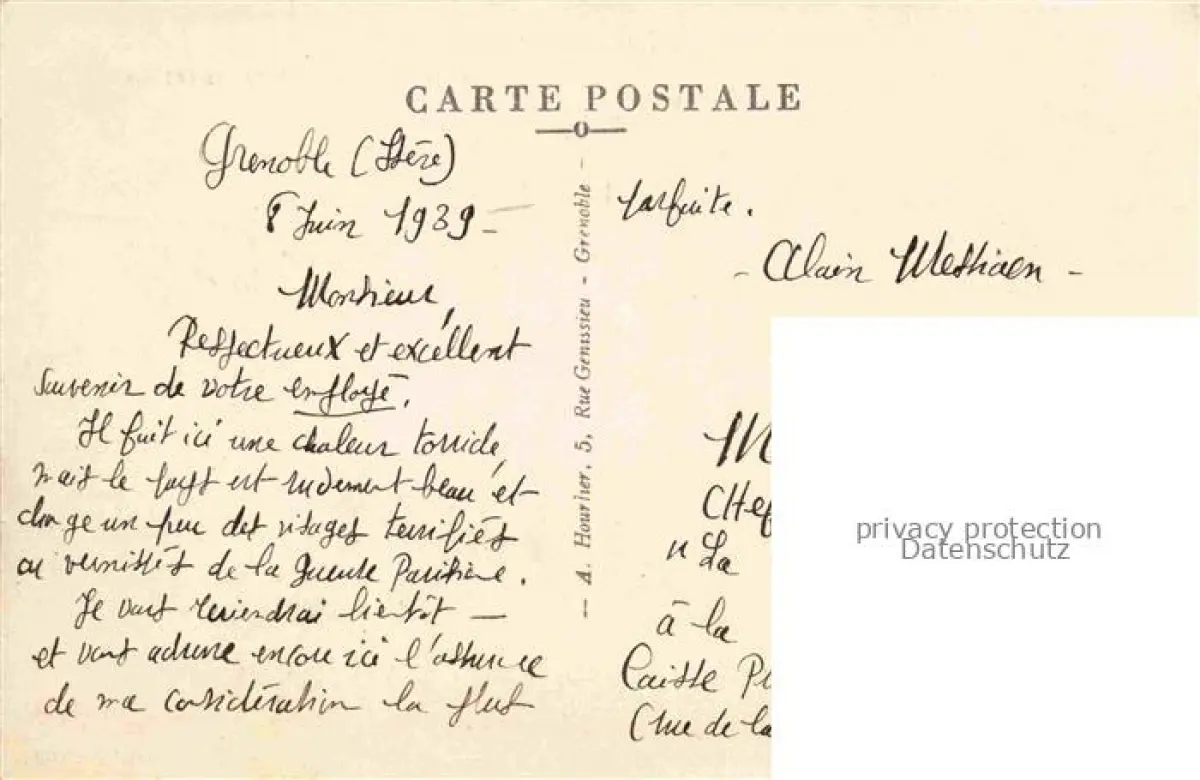 CARTE POSTALE
Grenoble (Isère)
8 Juin 1939 -
Monsieur,
Respectueux et excellent
souvenir de votre employé.
Il fait ici une chaleur torride,
mais le pays est rudement beau et
change un peu des visages terrifiés
ou vernissés de la Gueule Parisienne.
Je vous reviendrai bientôt —
et vous adresse encore ici l'assurance
de ma considération la plus
— A. Hourlier, 5, Rue Genissieu - Grenoble —
parfaite.
- Alain Messiaen -
M
CHef
"La
à la
Caisse P
(rue de la
privacy protection
Datenschutz